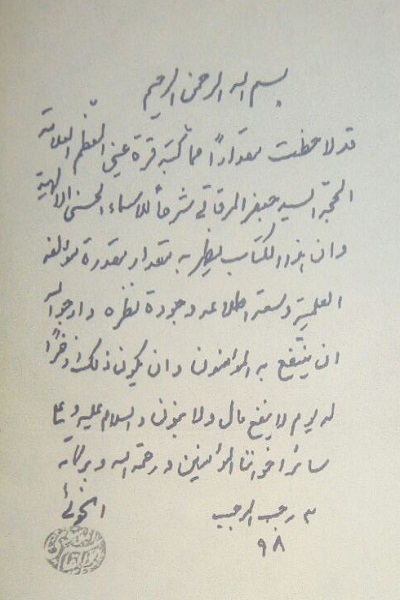 بسم الله الرحمن الرحيم
قد لاحظت مقداراً مما كتبه قرة عيني المعظم العلامة
الحجة السيد جعفر المرقاتي شرحاً للاسماء الحسنى الالهية
وان هذا الكتاب يظهر به مقدار مقدرة مؤلفه
العلمية وسعة اطلاعه وجودة نظره وارجو الله
ان ينتفع به المؤمنون وان يكون ذلك ذخراً
له يوم لا ينفع مال ولا بنون والسلام عليه وعلى
سائر اخواننا المؤمنين ورحمة الله وبركاته
٣ رجب المرجب الخوئي
٩٨